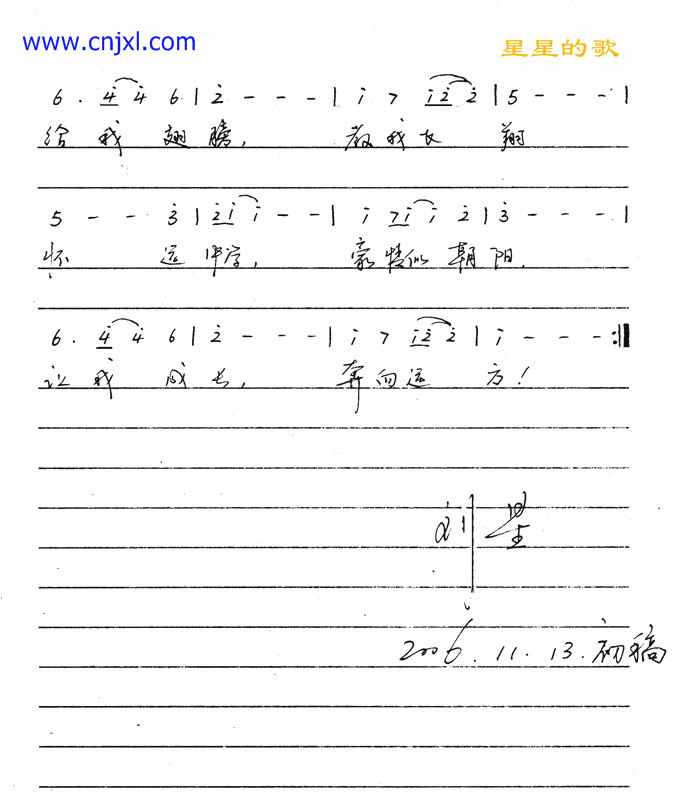 www.cnjxl.com 星星的歌
6. 4̇ 4̇ 6 | 2̇ - - - | i 7 i2̇ 2̇ | 5 - - - |
给 我 翅 膀, 教 我 长 翔
5 - - 3̇ | 2̇i i - - | i 7i i 2̇ | 3̇ - - - |
怀 远 中学, 豪情似 朝 阳.
6. 4̇ 4̇ 6 | 2̇ - - - | i 7 i2̇ 2̇ | i - - - :||
让 我 成 长, 奔向远 方!
刘星
2006.11.13.初稿